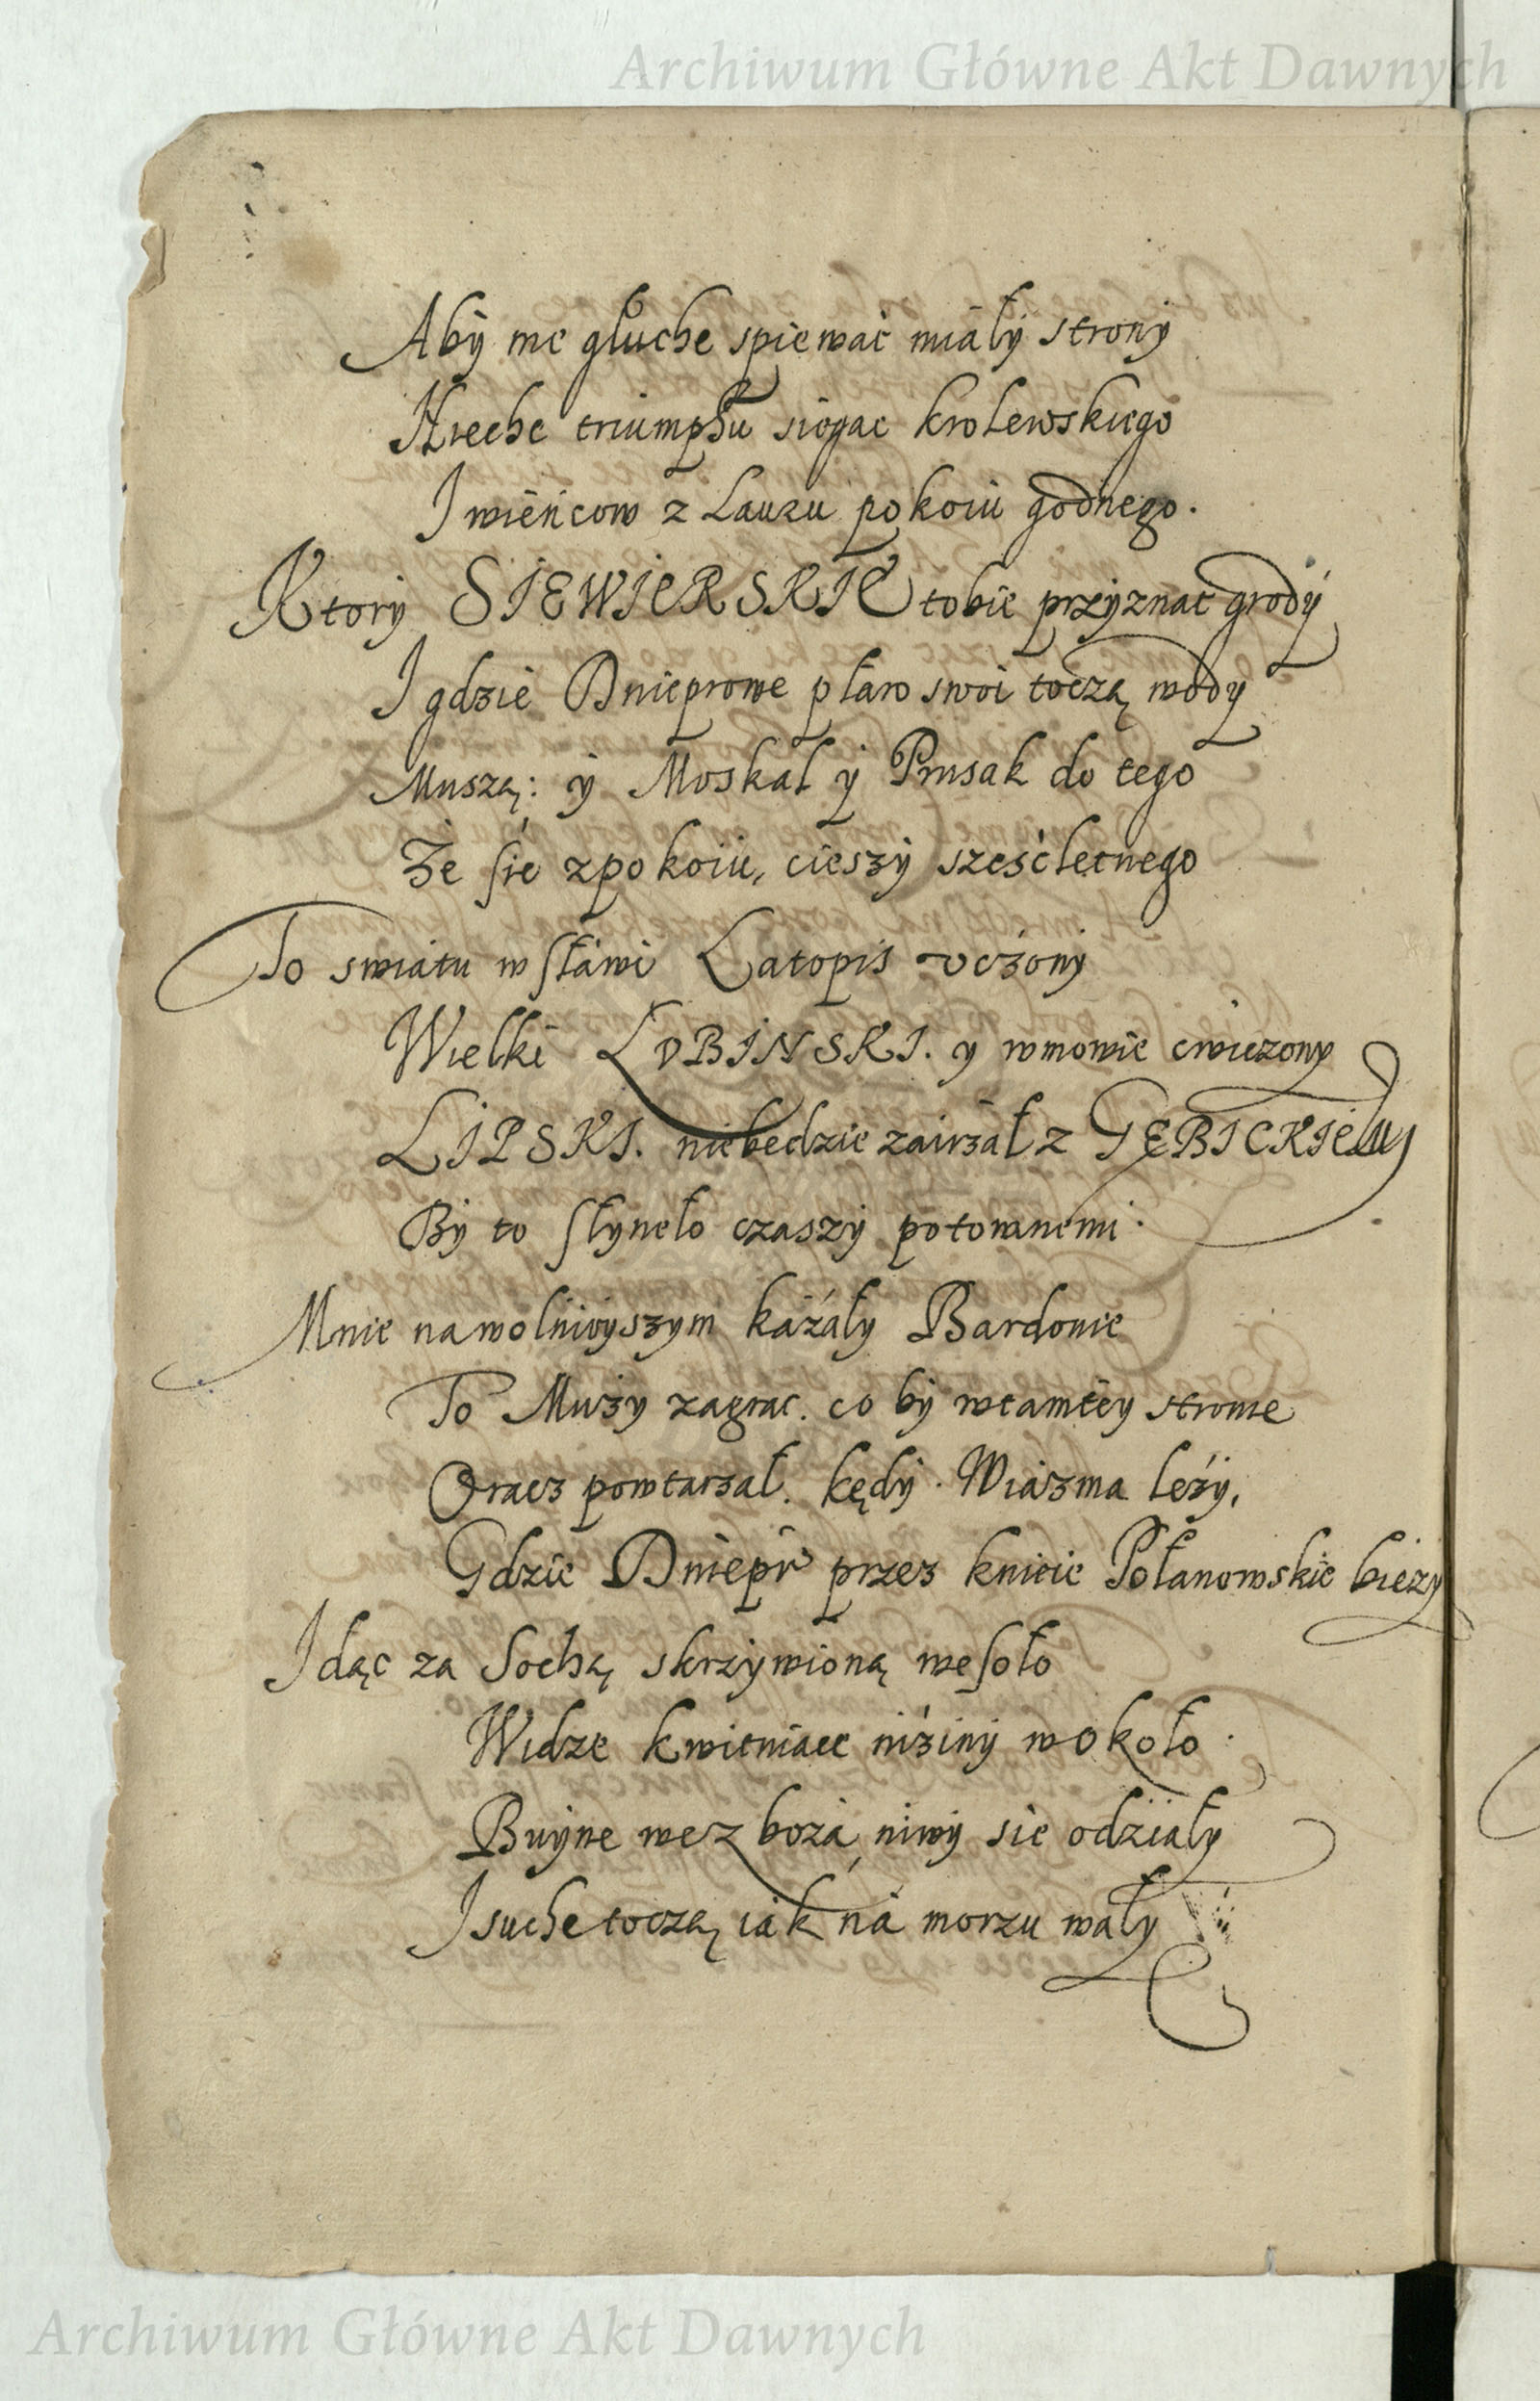 Archiwum Główne Akt Dawnych
Aby me głuche spiewać miały strony
Niechc triumphu siögac krolewskiego
I wieńcow z Lauru pokoiu godnego.
Ktory SIEWIERSKIE tobie przyznać grody
I gdzie Dnieprowe pław swoi toczą wody
Muszą: y Moskal y Prusak do tego
Że sie z pokoiu, cieszy sześćletnego
To swiatu wsławi Latopis vczony
Wielki LVBINSKI. y wmowie cwiczony
LIPSKI. niebedzie zairzał z GĘBICKIEM
By to słyneło czaszy potomnemi.
Mnie nawolniwyszym kazały Bardonie
To Muzy zagrac. co by wtamtey stronie
Oracz powtarzał. kędy. Wiazma leży,
Gdzie Dniepr przez knieie Polanowskie bieży
Idąc za Sochą skrzywioną wesoło
Widze kwitniące niziny wokoło.
Buyne wezboża niwy sie odziały
I suche toczą iak na morzu wały
Archiwum Główne Akt Dawnych